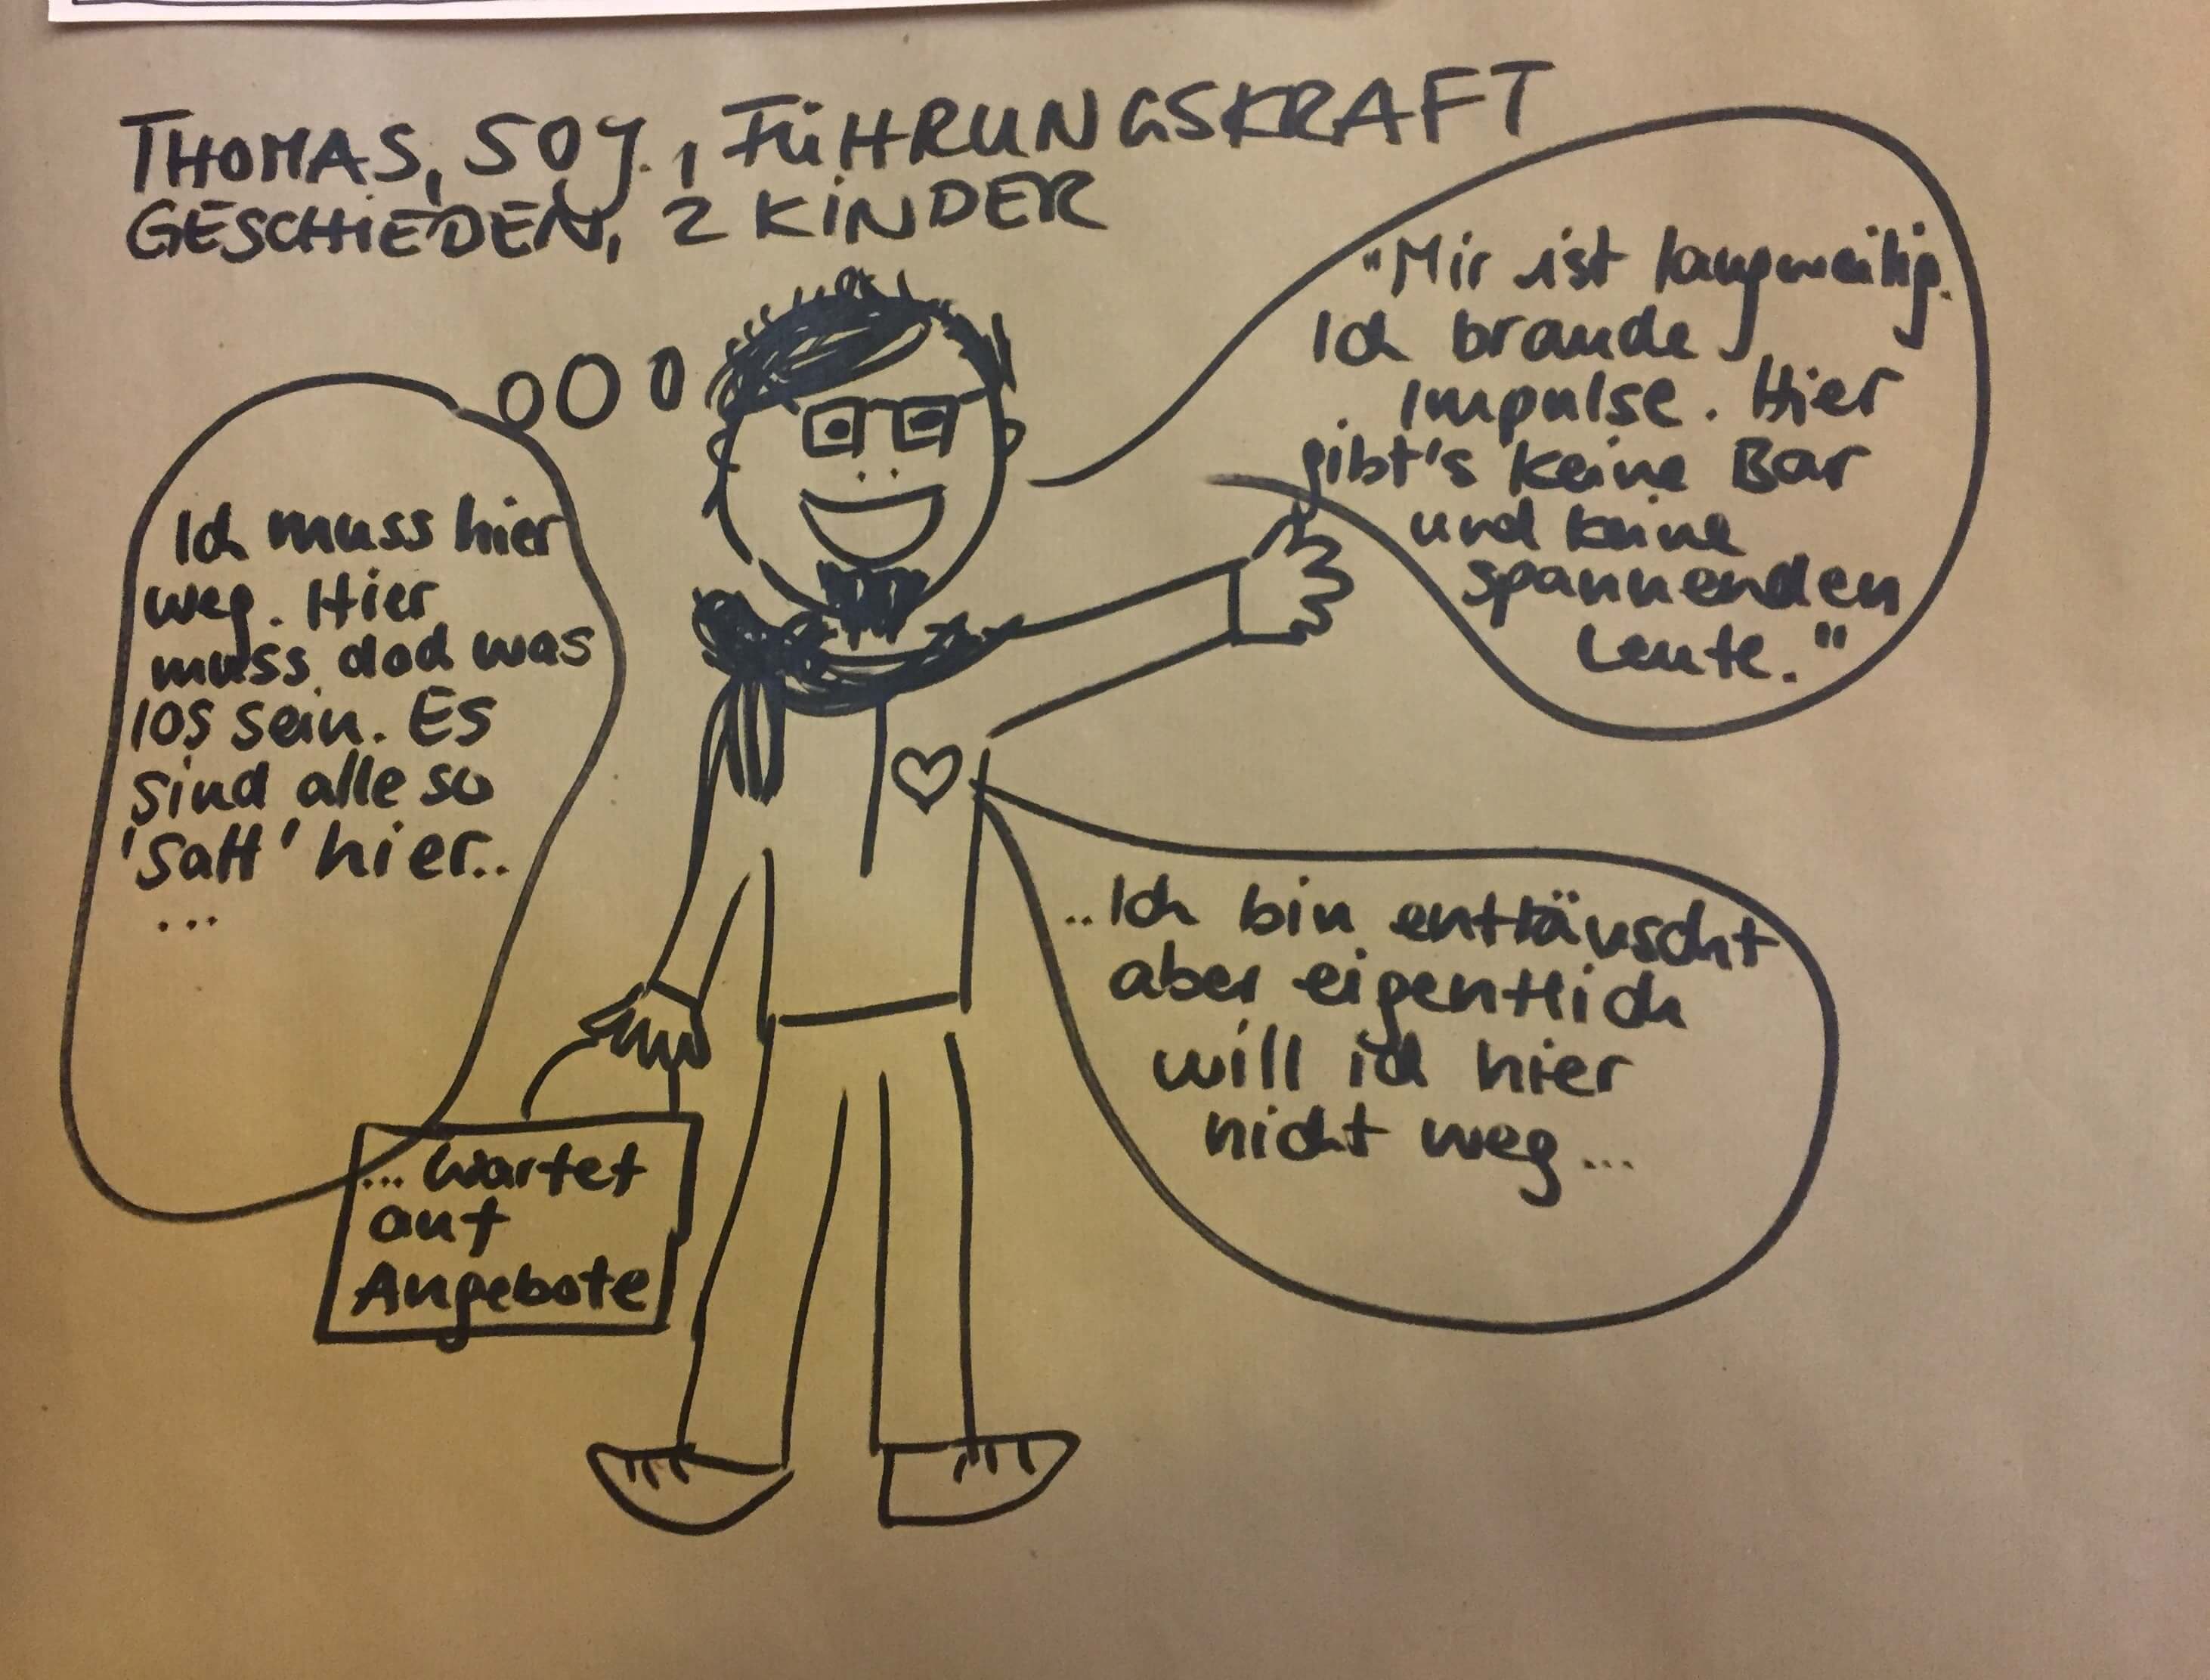 THOMAS, 50 J., FÜHRUNGSKRAFT
GESCHIEDEN, 2 KINDER
"Mir ist langweilig.
Ich brauche
Impulse. Hier
gibt's keine Bar
und keine
spannenden
Leute."
Ich muss hier
weg. Hier
muss doch was
los sein. Es
sind alle so
'satt' hier..
...
..Ich bin enttäuscht
aber eigentlich
will ich hier
nicht weg...
... wartet
auf
Angebote